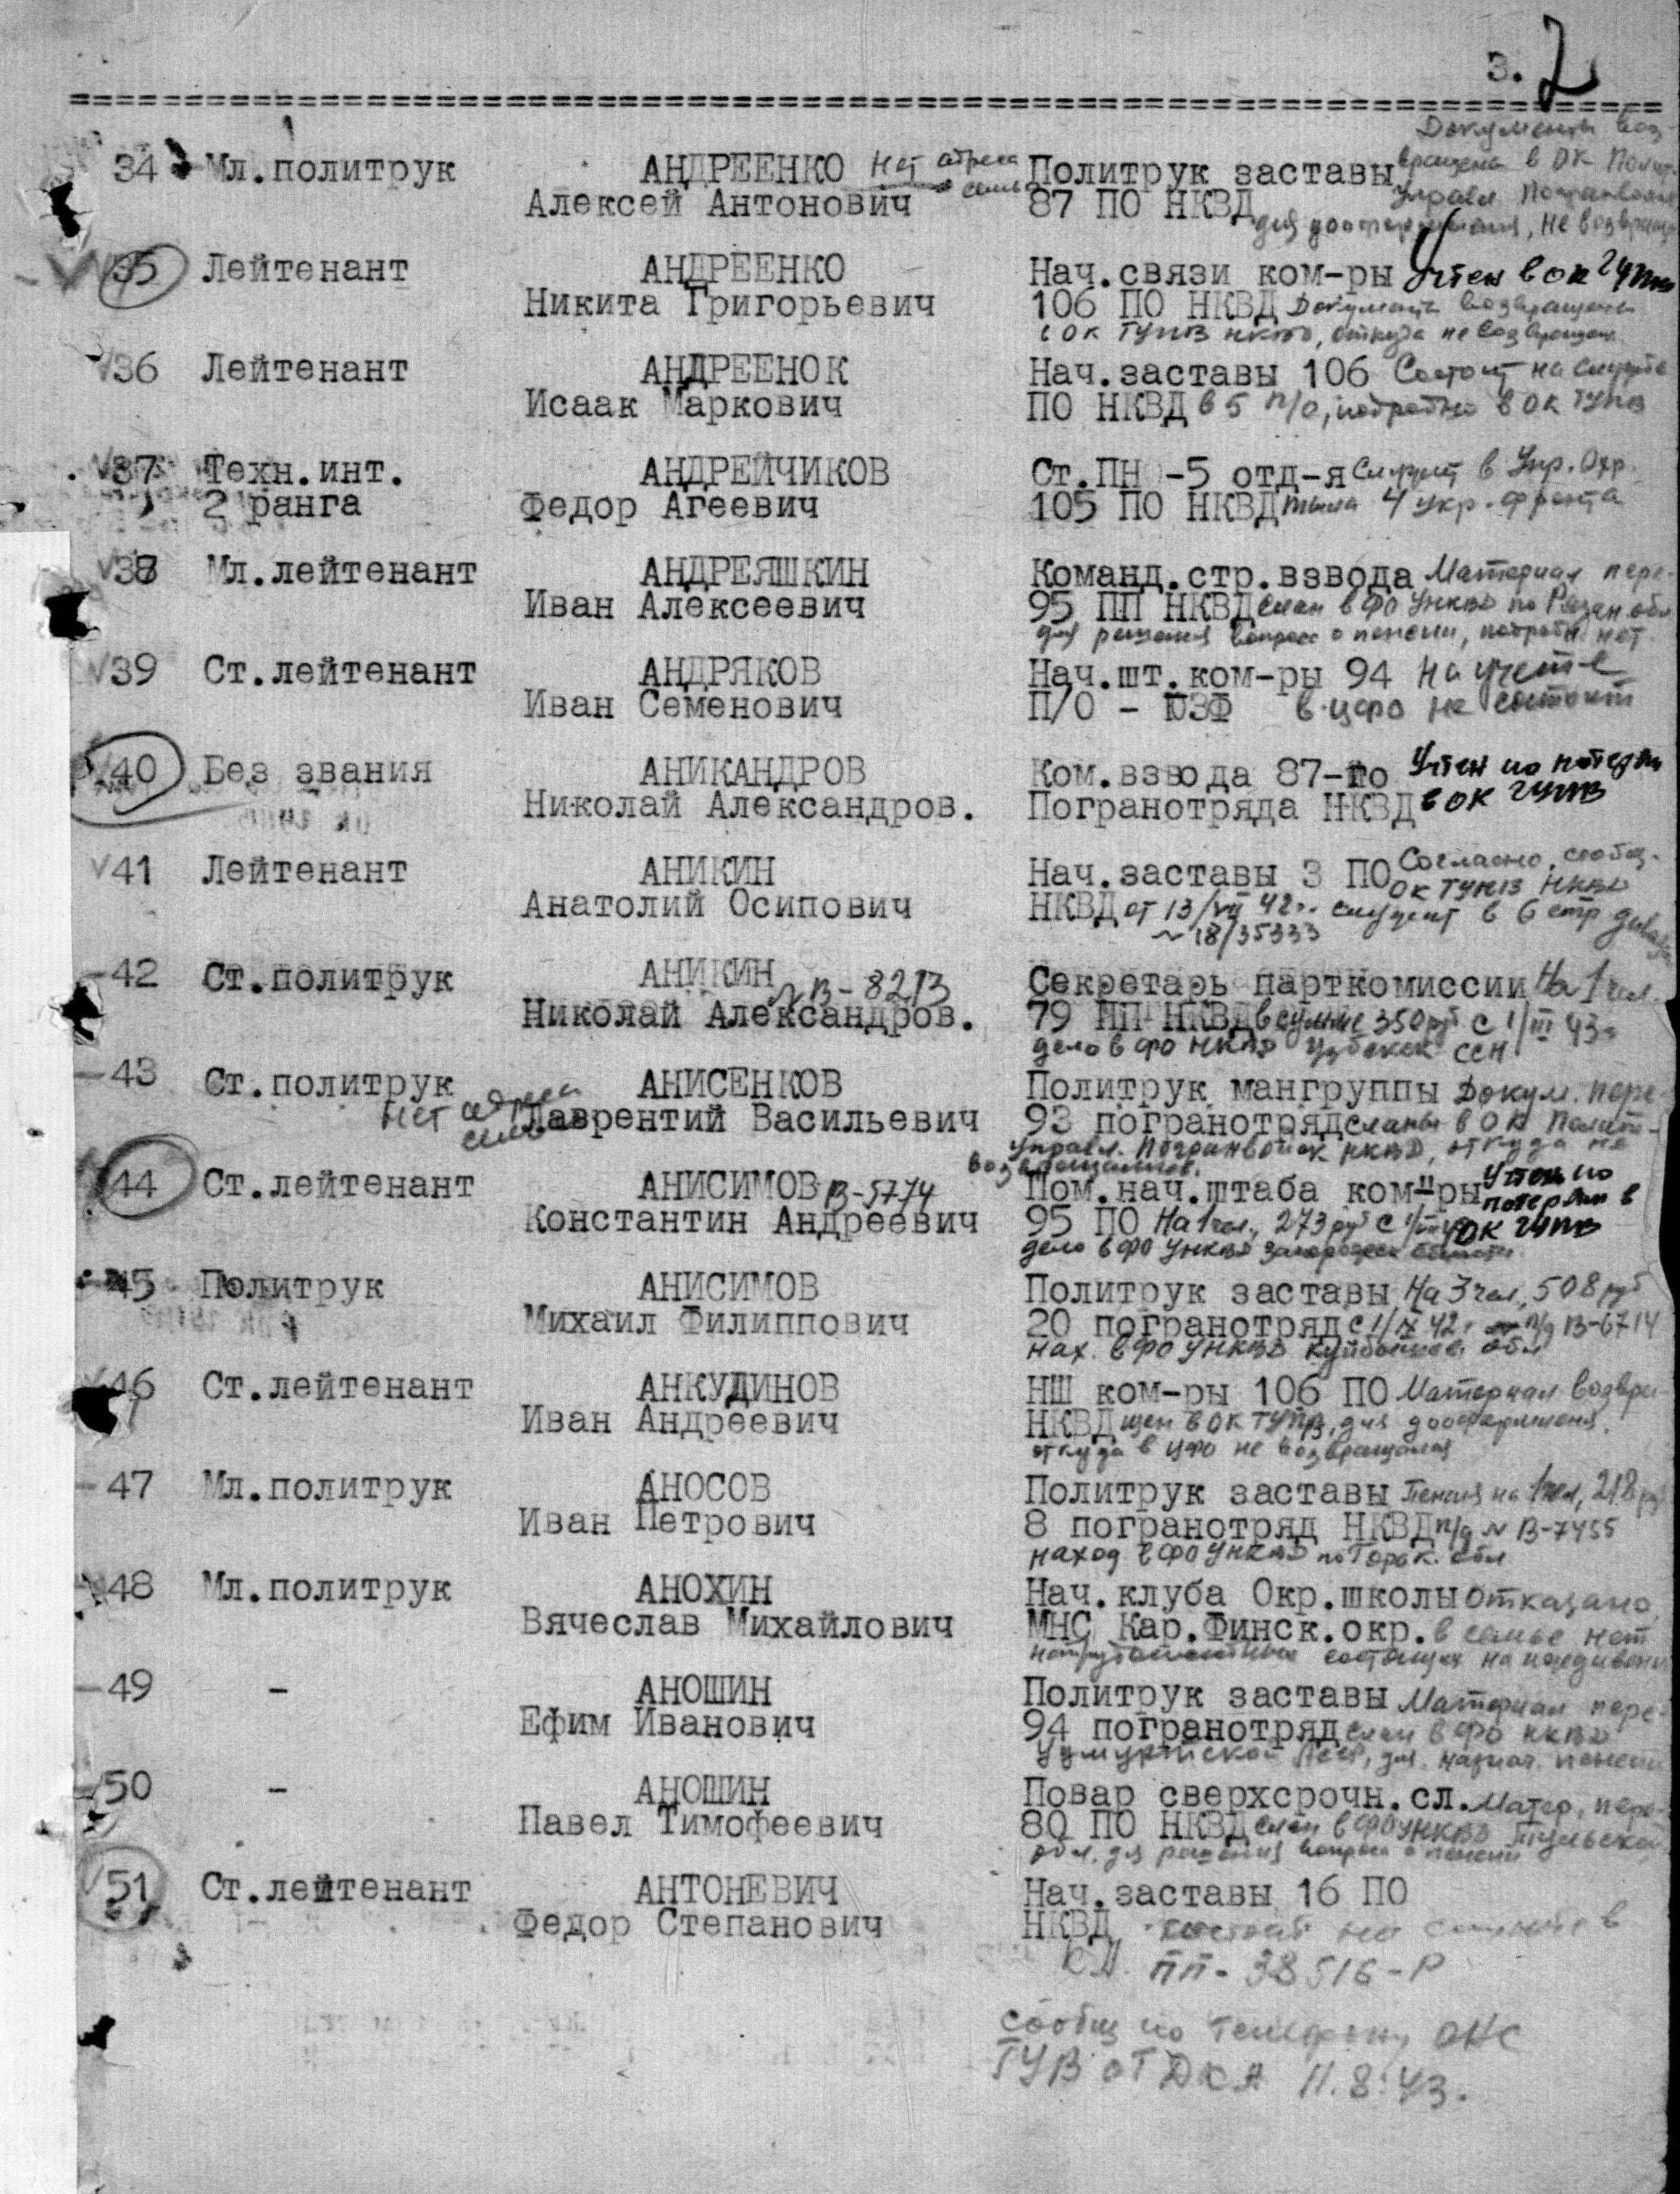 3. 2
34 Мл.политрук АНДРЕЕНКО Нет адреса Политрук заставы
Алексей Антонович семьи 87 ПО НКВД
Документы воз-
вращены в ОК Полит.
Управл. Погранвойск
для дооформления, не возвращ.
35 Лейтенант АНДРЕЕНКО Нач.связи ком-ры Учтен в ОК ГУПВ
Никита Григорьевич 106 ПО НКВД Документы возвращены
в ОК ГУПВ НКВД, откуда не возвращен.
36 Лейтенант АНДРЕЕНОК Нач.заставы 106 Состоит на службе
Исаак Маркович ПО НКВД в 5 п/о, подробно в ОК ГУПВ
37 Техн.инт. АНДРЕЙЧИКОВ Ст.ПН -5 отд-я Служит в Упр. Охр.
2 ранга Федор Агеевич 105 ПО НКВД тыла 4 Укр. фронта
38 Мл.лейтенант АНДРЕЯШКИН Команд.стр.взвода Материал пере-
Иван Алексеевич 95 ПП НКВД слан в ФО УНКВД по Рязан. обл
для решения вопроса о пенсии, подробн. нет
39 Ст.лейтенант АНДРЯКОВ Нач.шт.ком-ры 94 На учет-е
Иван Семенович П/О - ЮЗФ в ЦФО не состоит
40 Без звания АНИКАНДРОВ Ком.взвода 87-го Учтен по потерям
Николай Александров. Погранотряда НКВД в ОК ГУПВ
41 Лейтенант АНИКИН Нач.заставы 3 ПО Согласно сообщ.
ОК ГУПВ НКВД
Анатолий Осипович НКВД от 13/VII 42г. служит в 6 стр дивизии
№ 18/35333
42 Ст.политрук АНИКИН Секретарь парткомиссии На 1 чел.
№ В-8213
Николай Александров. 79 ПП НКВД в сумме 350 руб с 1/III 43г
дело в ФО НКВД Узбекск ССР
43 Ст.политрук АНИСЕНКОВ Политрук мангруппы Докум. пере-
Нет адреса Лаврентий Васильевич 93 погранотряд сланы в ОК Полит-
семьи Управл. Погранвойск НКВД, откуда не
возвращались.
44 Ст.лейтенант АНИСИМОВ В-5774 Пом.нач.штаба ком-ры Учтен по
потерям в
Константин Андреевич 95 ПО На 1 чел., 273 руб с ОК ГУПВ
дело в ФО УНКВД области.
45 Политрук АНИСИМОВ Политрук заставы На 3 чел., 508 руб
Михаил Филиппович 20 погранотряд с 1/IX 42г п/д В-6714
нах. в ФО УНКВД Куйбышев. обл
46 Ст.лейтенант АНКУДИНОВ НШ ком-ры 106 ПО Материал возвра-
Иван Андреевич НКВД щен в ОК ГУПВ, для дооформления.
откуда в ЦФО не возвращался
47 Мл.политрук АНОСОВ Политрук заставы Пенсия на 1 чел, 218 руб
Иван Петрович 8 погранотряд НКВД п/д № В-7455
наход в ФО УНКВД по Горьк. обл
48 Мл.политрук АНОХИН Нач.клуба Окр.школы Отказано,
Вячеслав Михайлович МНС Кар.Финск.окр. в семье нет
нетрудоспособных состоящих на иждивении
49 - АНОШИН Политрук заставы Материал пере-
Ефим Иванович 94 погранотряд слан в ФО НКВД
Удмуртской АССР, для назнач. пенсии
50 - АНОШИН Повар сверхсрочн.сл. Матер. пере-
Павел Тимофеевич 80 ПО НКВД слан в ФО УНКВД Тульской
обл. для решения вопроса о пенсии
51 Ст.лейтенант АНТОНЕВИЧ Нач.заставы 16 ПО
Федор Степанович НКВД состоит на службе в
К.А. пп. 38516-Р
сообщ по телефону ОКС
ГУВ от ДКА 11.8.43.